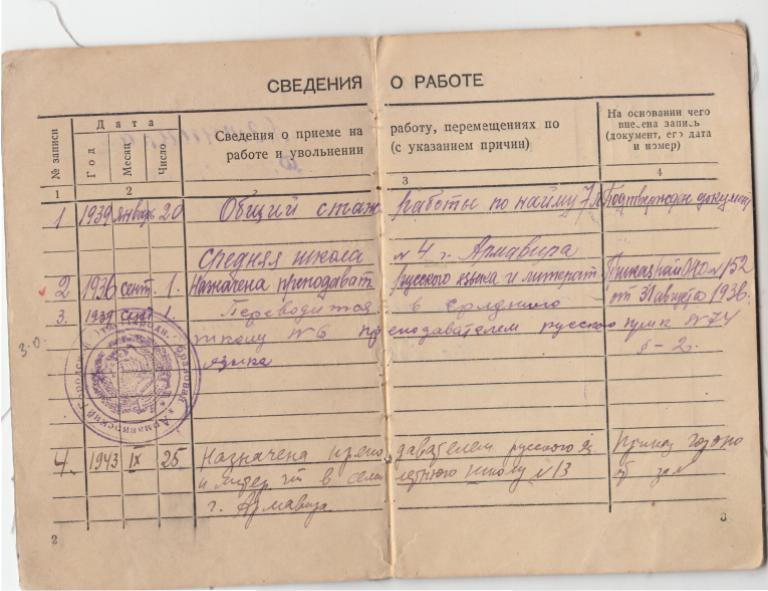 СВЕДЕНИЯ О РАБОТЕ
№ записи
Дата
Год
Месяц
Число
Сведения о приеме на работу, перемещениях по
работе и увольнении (с указанием причин)
На основании чего
внесена запись
(документ, его дата
и номер)
1 2 3 4
1 1939 январь 20 Общий стаж работы по найму 7 л Подтвержден докумен
Средняя школа № 4 г. Армавира
2 1936 сент. 1. Назначена преподават русского языка и литерат. Приказ ГОРОНО №152
от 31 августа 1936.
3. 1939 сент 1. Переводится в среднюю
школу № 6 преподавателем русского
языка
№ 74
§-2.
з.о.
4. 1943 IX 25 Назначена препо давателем русского яз.
и литер. в семилетнюю школу №13
г. Армавира
Приказ гороно
2
3